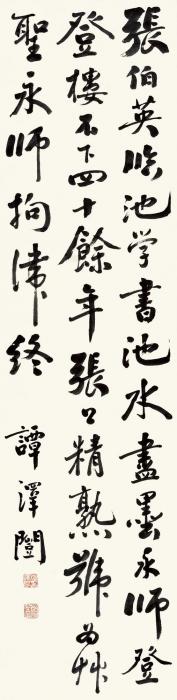 張伯英臨池学書池水盡墨永師登
登樓不下四十餘年張公精熟號為艸
聖永師拘滯終
譚澤闓